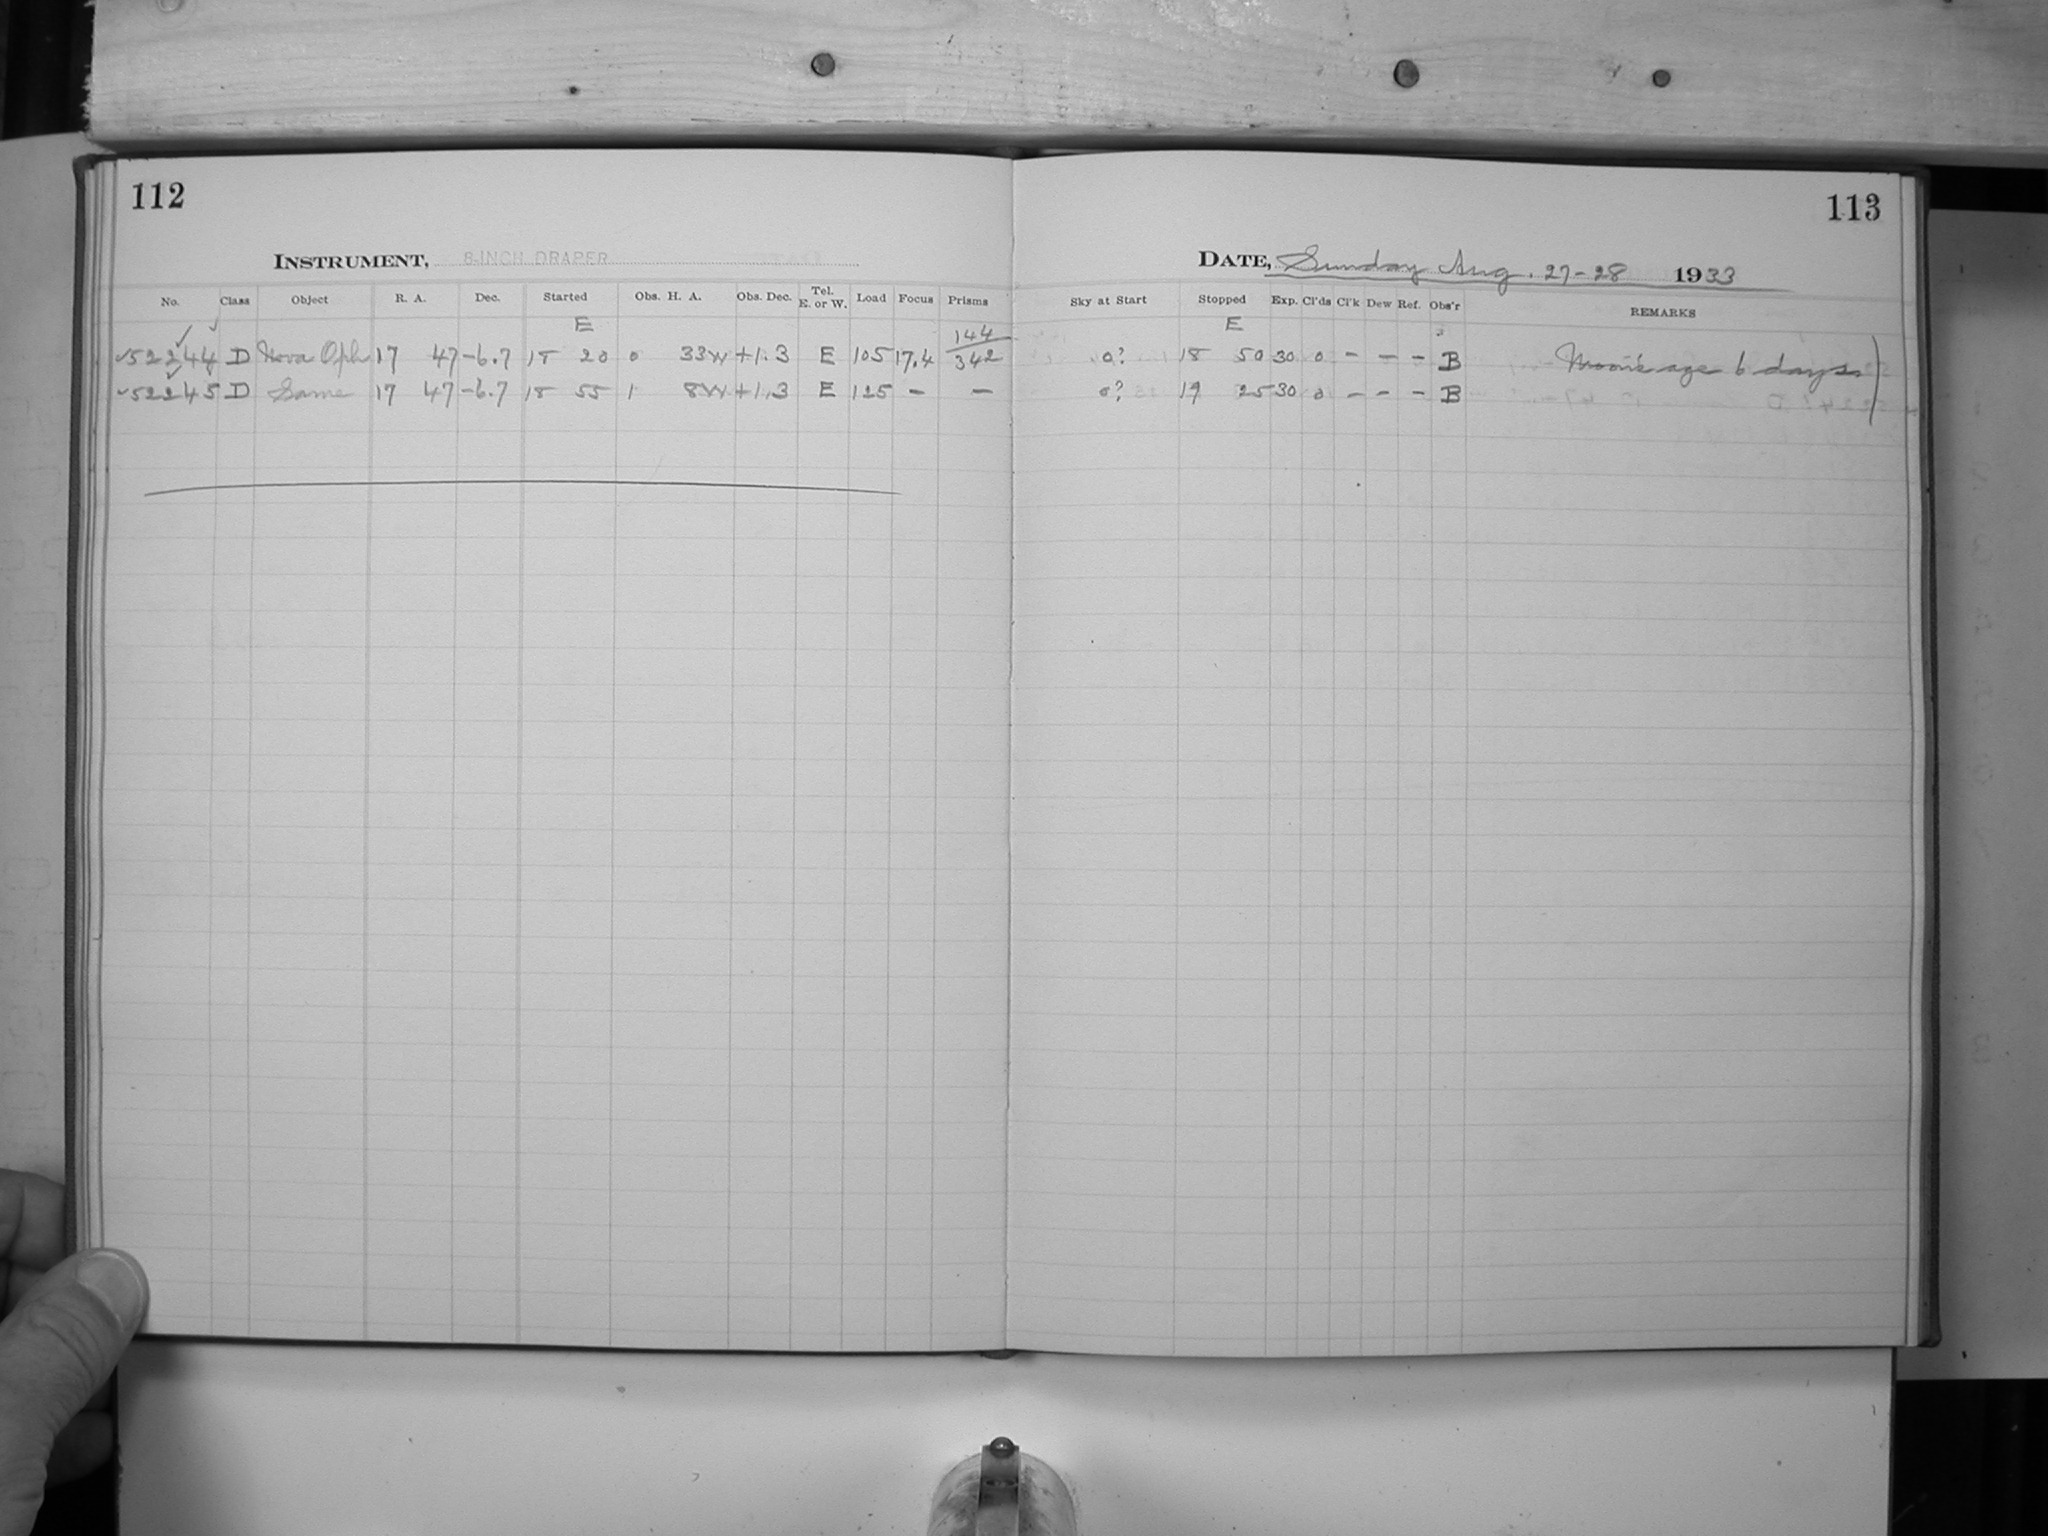 112
INSTRUMENT, 8-INCH DRAPER
No. Class Object R. A. Dec. Started Obs. H. A. Obs. Dec. Tel. E. or W. Load Focus Prisms
E
144
52244 D Nova Oph 17 47 -6.7 18 20 0 33W +1.3 E 105 17.4 342
52245 D Same 17 47 -6.7 18 55 1 8W +1.3 E 125 - -
113
DATE, Sunday Aug. 27-28 1933
Sky at Start Stopped Exp. Cl'ds Cl'k Dew Ref. Obs'r REMARKS
E
0? 18 50 30 0 - - - B Moon's age 6 days
0? 19 25 30 0 - - - B